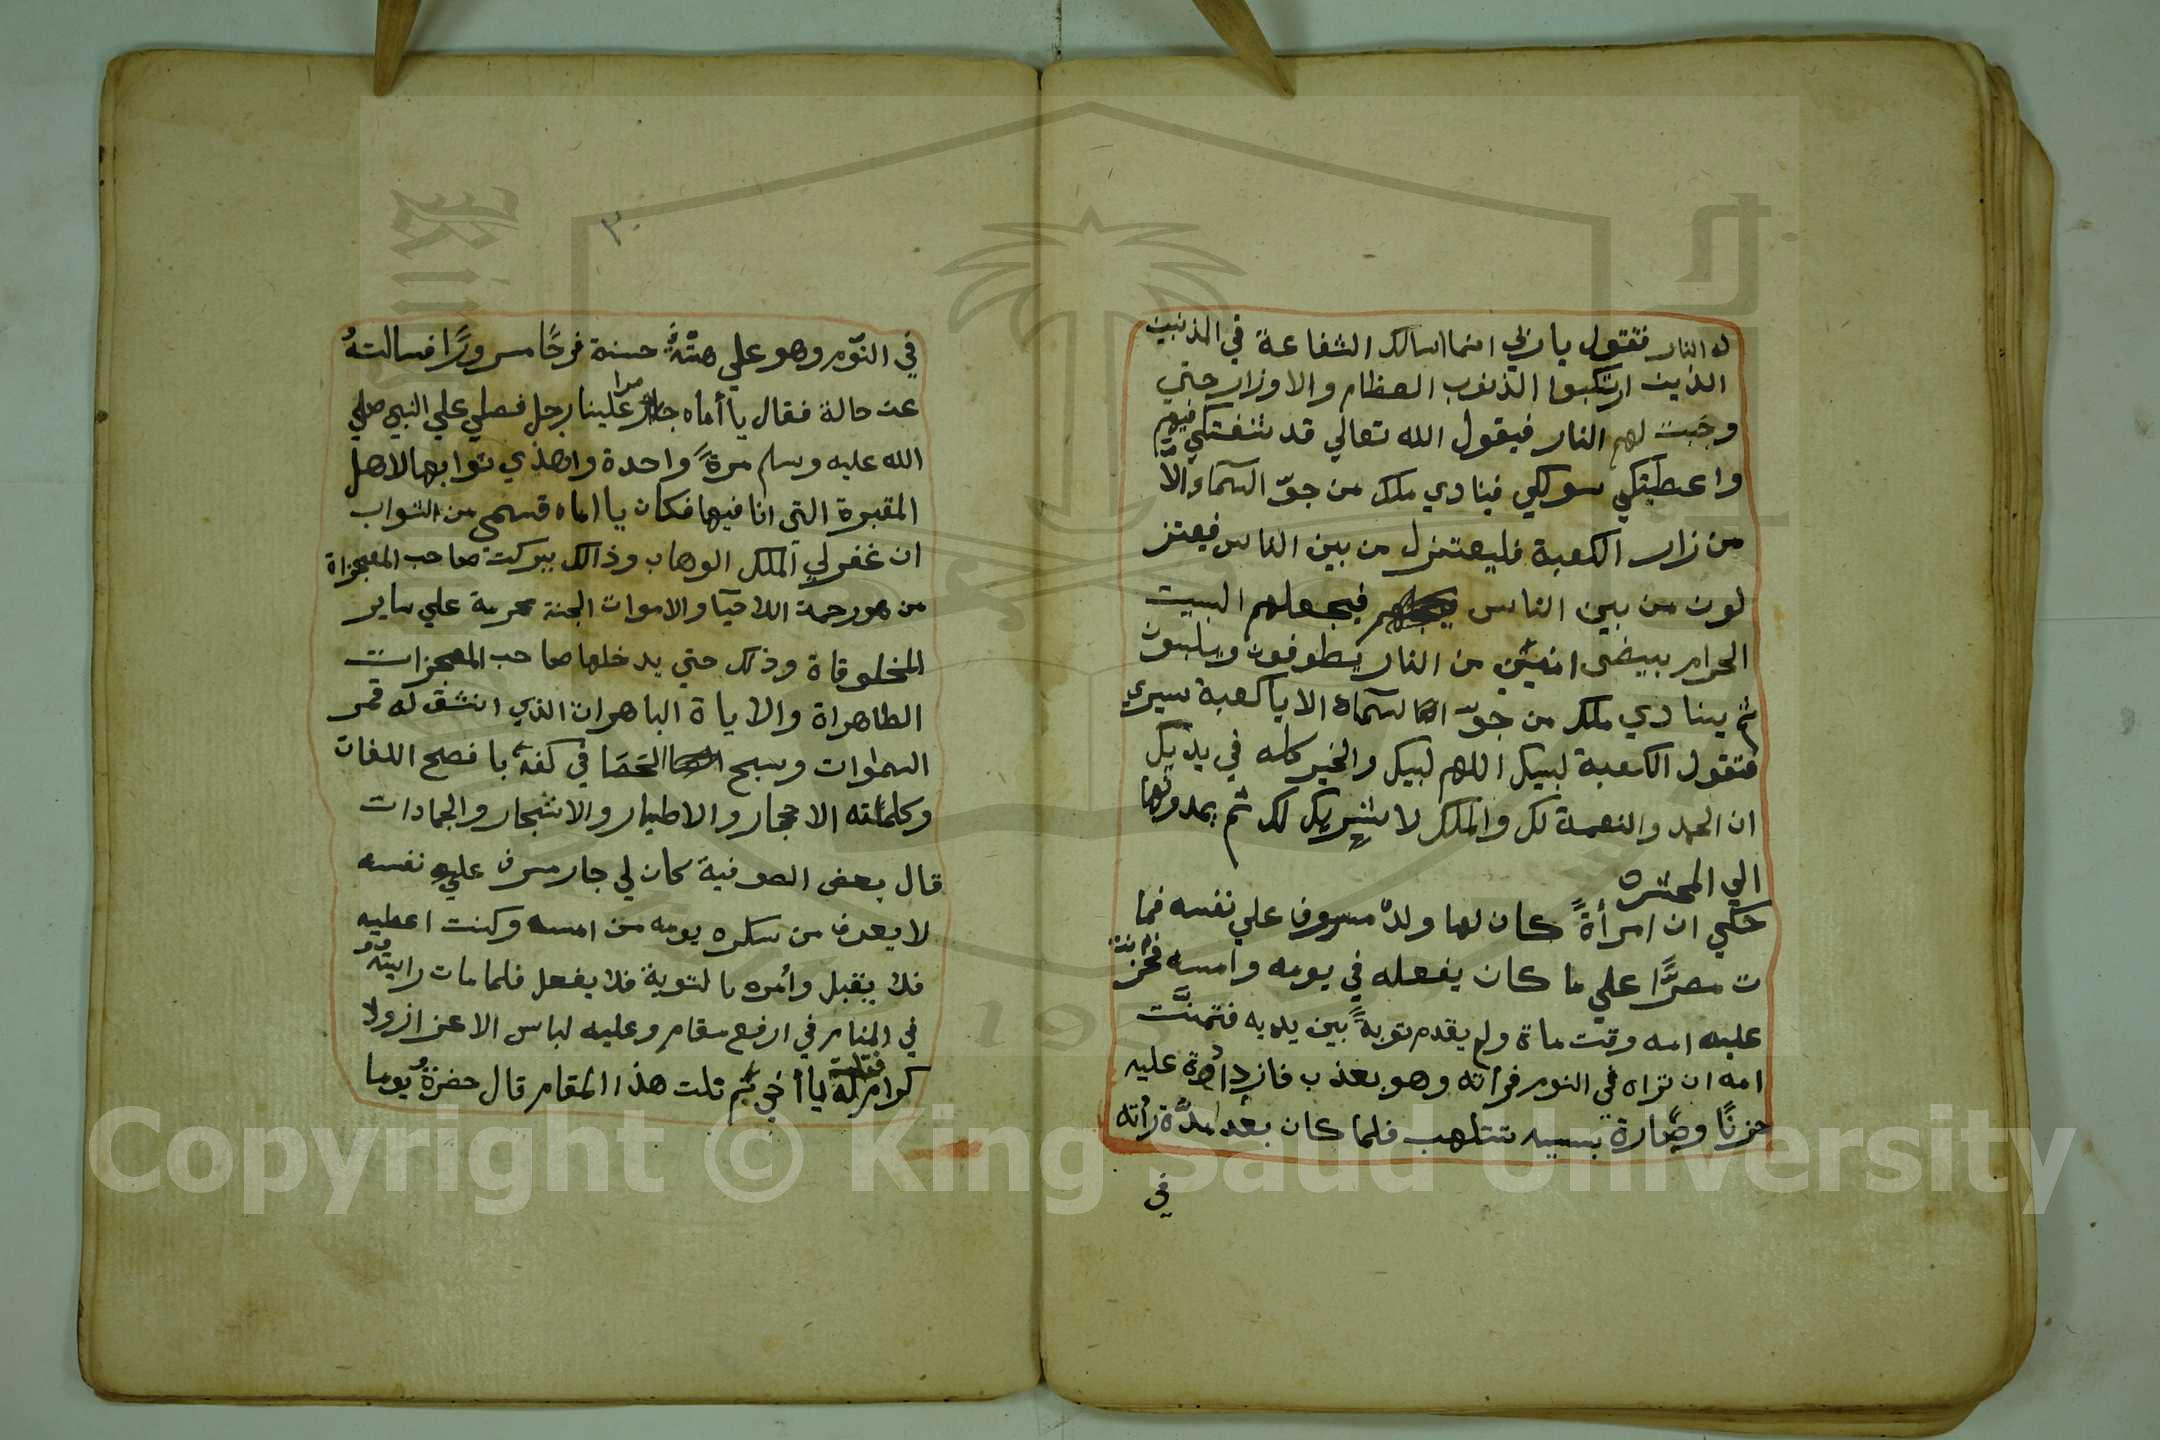 له النار فتقول يا ربي انما اسالك الشفاعة في المذنبين
الذين ارتكبوا الذنوب العظام والاوزار حتي
وجبت لهم النار فيقول الله تعالي قد شفعتكي فيهم
واعطيتكي سولكي فينادي ملك من جوّ السمآء الا
من زار الكعبة فليعتزل من بين الناس فيعتز
لون من بين الناس فيجعلهم البيت
الحرام ببيضى امنين من النار يطوفون ويلبون
ثم ينادي ملك من جوّ السمآء الا يا كعبة سيري
فتقول الكعبة لبيك اللهم لبيك والخير كله في يديك
ان الحمد والنعمة لك والملك لا شريك لك ثم يمدونها
الي المحشره
حكي ان امرأةً كان لها ولدٌ مسرف علي نفسه فما
ت مصرًّا علي ما كان يفعله في يومه وامسه فحزنت
عليه امه وقت ماة ولم يقدم توبةً بين يديه فتمنَّت
امه ان تراه في النوم فرأته وهو يعذب فازدادة عليه
حزنًا وصارة بسببه تتلهب فلما كان بعد مدَّة رأته
في
٣٠
في النوم وهو علي هيئةٍ حسنة فرحًا مسرورًا فسالتهُ
عن حالة فقال يا أماه علينا رجل فصلي علي النبي صلي
الله عليه وسلم مرةً واحدة واهدي ثوابها لاهل
المقبرة التي انا فيها فكان يا اماه قسمي من الثواب
ان غفر لي الملك الوهاب وذالك ببركت صاحب المعجزاة
من هو رحمة للاحيآ والاموات الجنة محرمة علي ساير
المخلوقاة وذلك حتي يدخلها صاحب المعجزات
الطاهراة والاياة الباهرات الذي انشق له قمر
السموات وسبح الحصا في كفه بافصح اللغات
وكلمته الاحجار والاطيار والاشجار والجمادات
قال بعض الصوفية كان لي جار مسرف علي نفسه
لا يعرف من سكره يومه من امسه وكنت اعظيه
فلا يقبل وأمره بالتوبة فلا يفعل فلما مات رايته
في المنام في ارفع مقام وعليه لباس الاعزاز ولا
كرام فقلت له يا أخي بم نلت هذا المقام قال حضرةُ يوما
Copyright © King Saud University